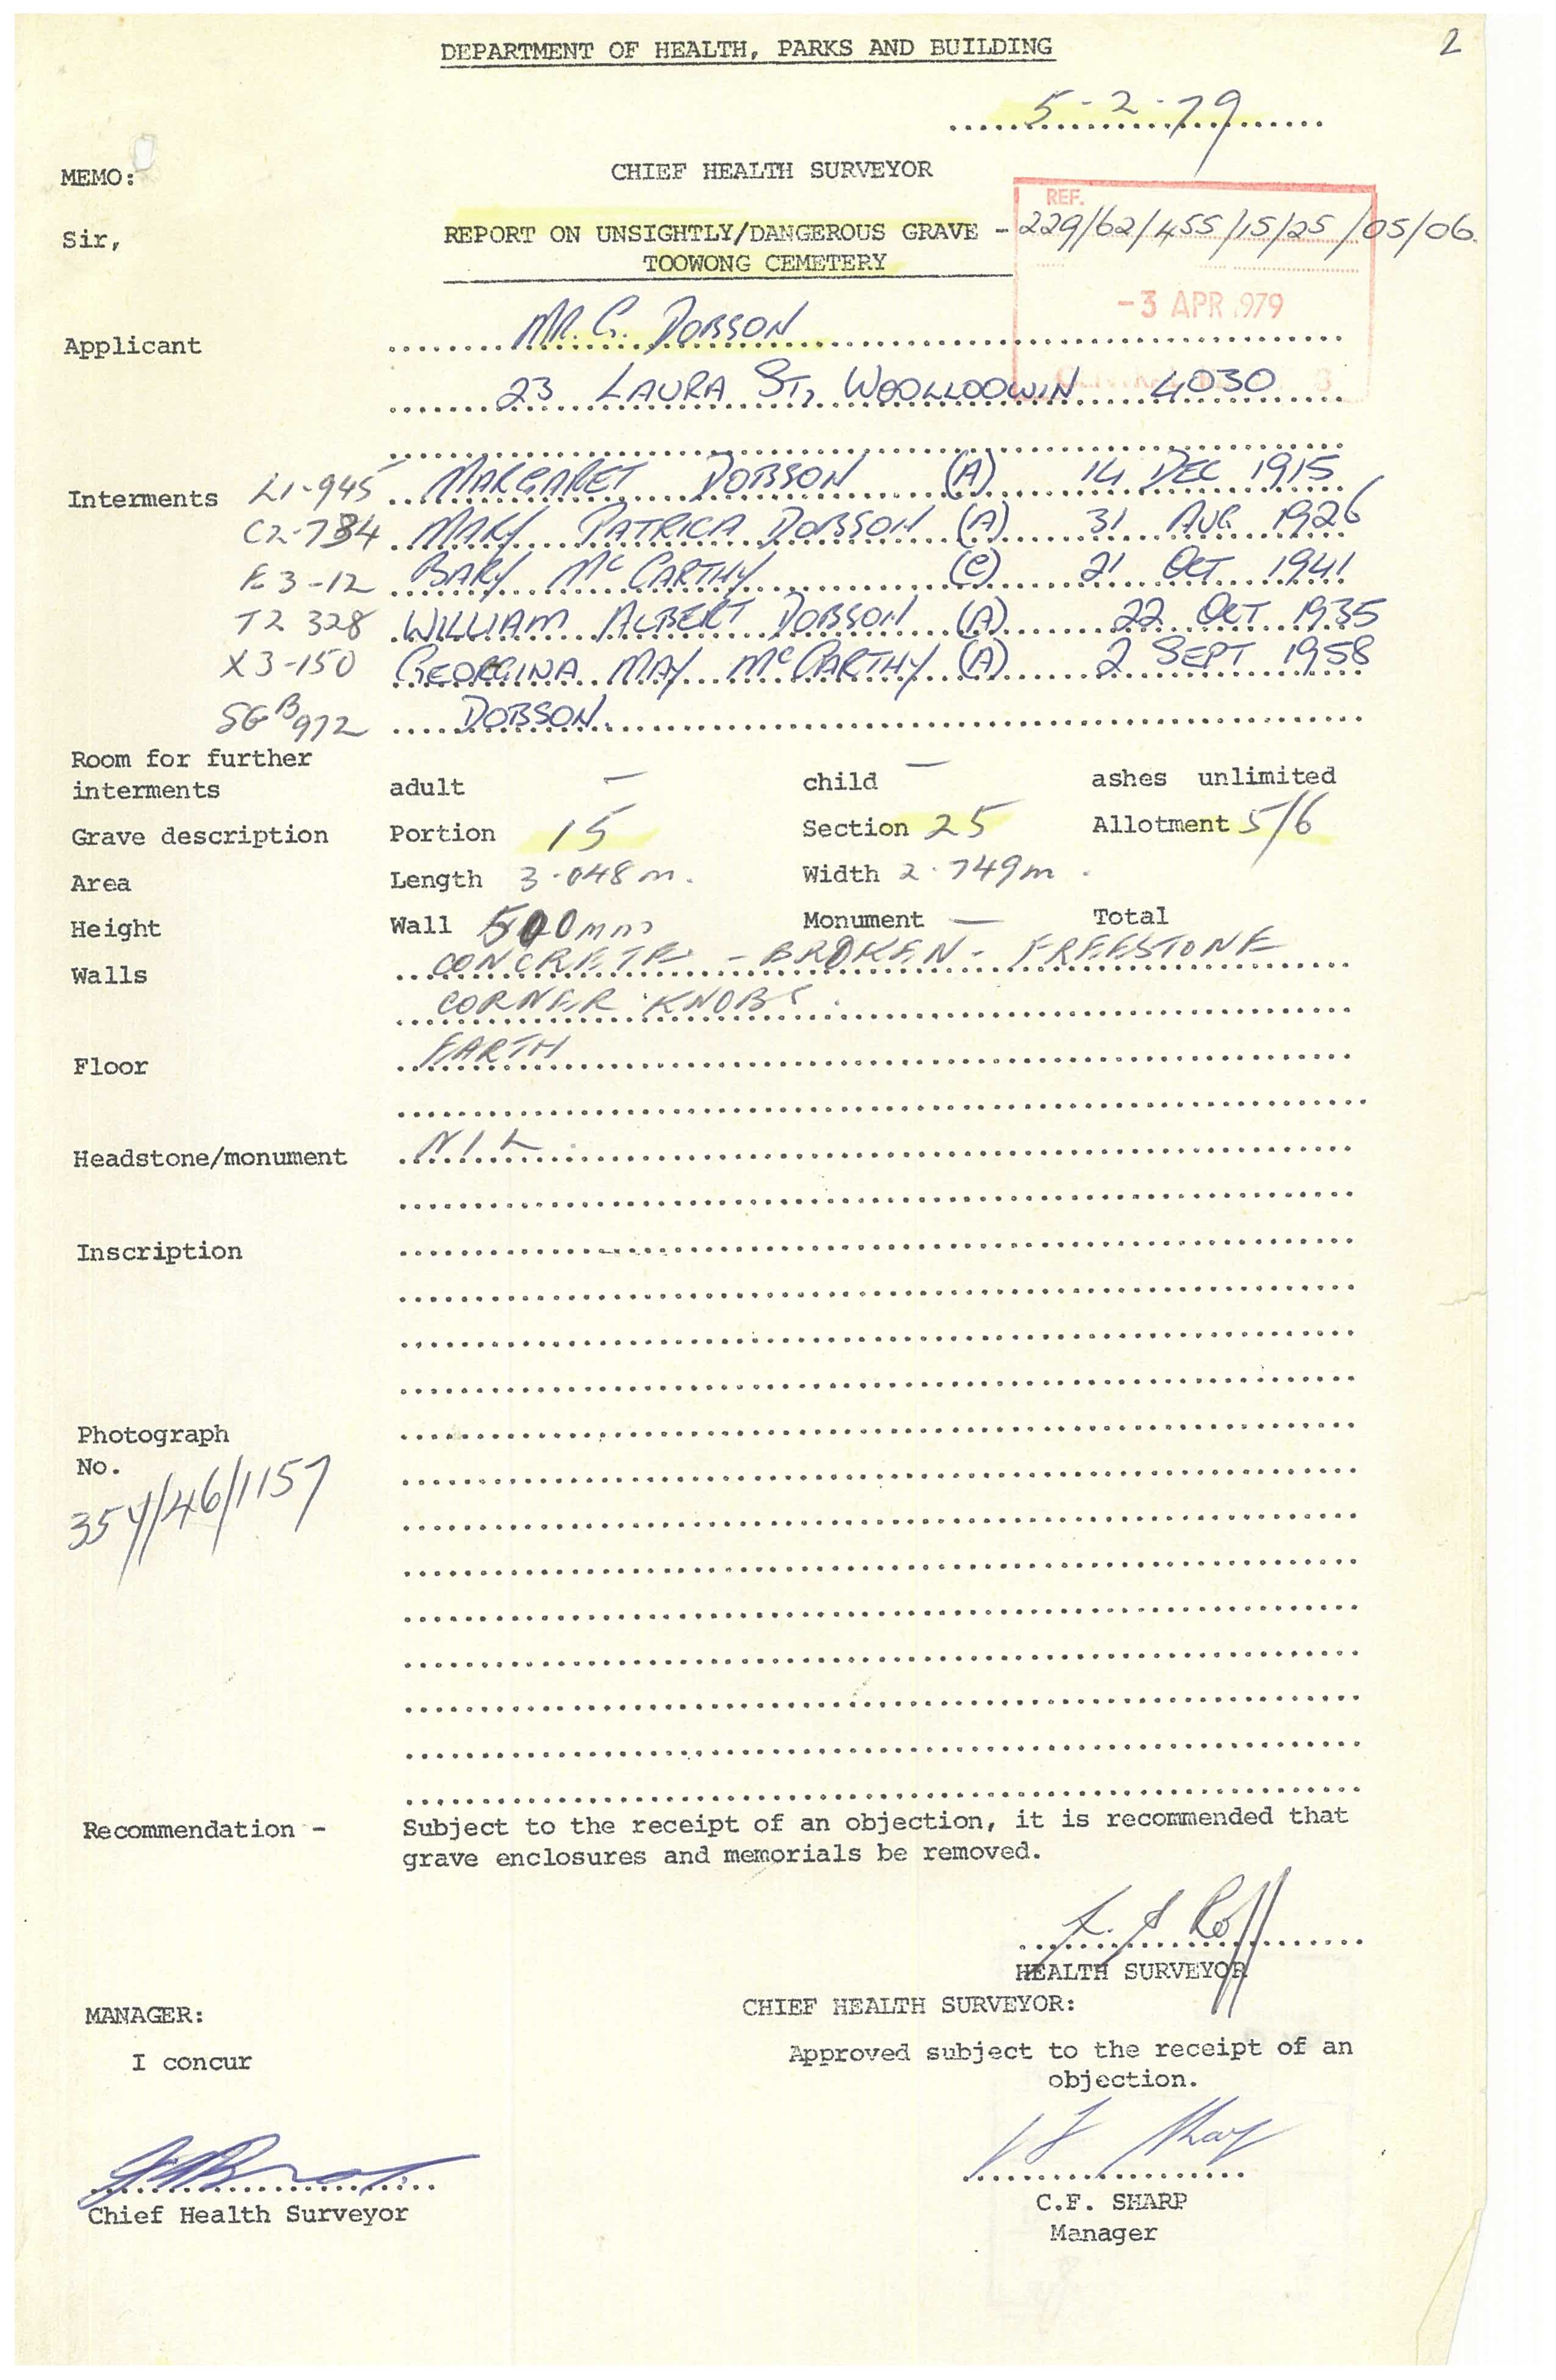 DEPARTMENT OF HEALTH, PARKS AND BUILDING
2
5-2-79
MEMO:
CHIEF HEALTH SURVEYOR
REF.
Sir,
REPORT ON UNSIGHTLY/DANGEROUS GRAVE - 229/62/455/15/25/05/06.
TOOWONG CEMETERY
-3 APR 1979
Applicant MR. G. DOBSON
23 LAURA ST, WOOLLOOWIN 4030
Interments L1-945 MARGARET DOBSON (A) 14 DEC 1915
C2-784 MARY PATRICA DOBSON (A) 31 AUG 1926
E3-12 BARY McCARTHY (C) 21 OCT 1941
T2 328 WILLIAM ALBERT DOBSON (A) 22 OCT 1935
X3-150 GEORGINA MAY McCARTHY (A) 2 SEPT 1958
SGB972 DOBSON
Room for further
interments adult - child - ashes unlimited
Grave description Portion 15 Section 25 Allotment 5/6
Area Length 3.048m. Width 2.749m.
Height Wall 500mm Monument - Total
Walls CONCRETE - BROKEN - FREESTONE
CORNER KNOBS.
Floor EARTH
Headstone/monument NIL.
Inscription
Photograph
No.
354/46/1157
Recommendation - Subject to the receipt of an objection, it is recommended that
grave enclosures and memorials be removed.
HEALTH SURVEYOR
MANAGER:
CHIEF HEALTH SURVEYOR:
I concur
Approved subject to the receipt of an
objection.
Chief Health Surveyor
C.F. SHARP
Manager